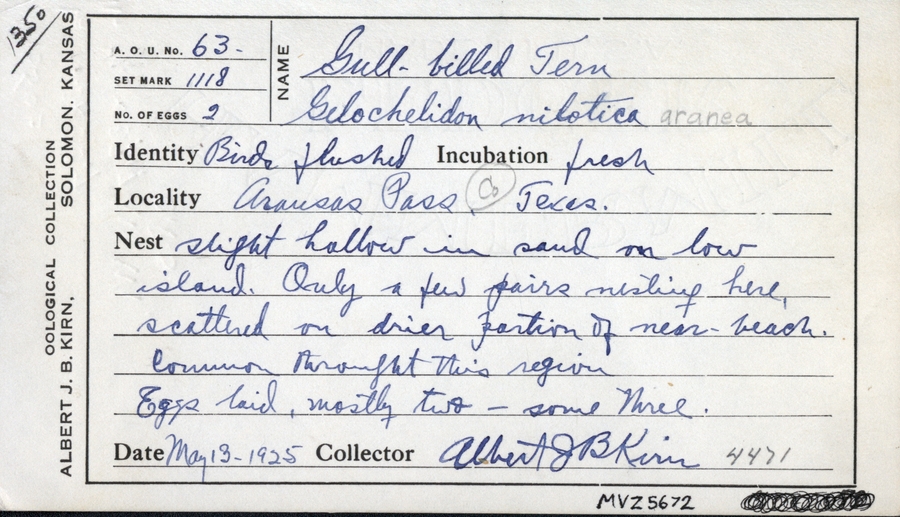 1350
ALBERT J. B. KIRN, SOLOMON. KANSAS
OOLOGICAL COLLECTION
A. O. U. No. 63-
SET MARK 1118
No. OF EGGS 2
NAME
Gull-billed Tern
Gelochelidon nilotica aranea
Identity Birds flushed Incubation fresh
Locality Aransas Pass, Co Texas.
Nest slight hollow in sand on low
island. Only a few pairs nesting here,
scattered on drier portion of near-beach.
Common throught this region
Eggs laid, mostly two - some three.
Date May 13-1925 Collector Albert J B Kirn 4471
MVZ 5672